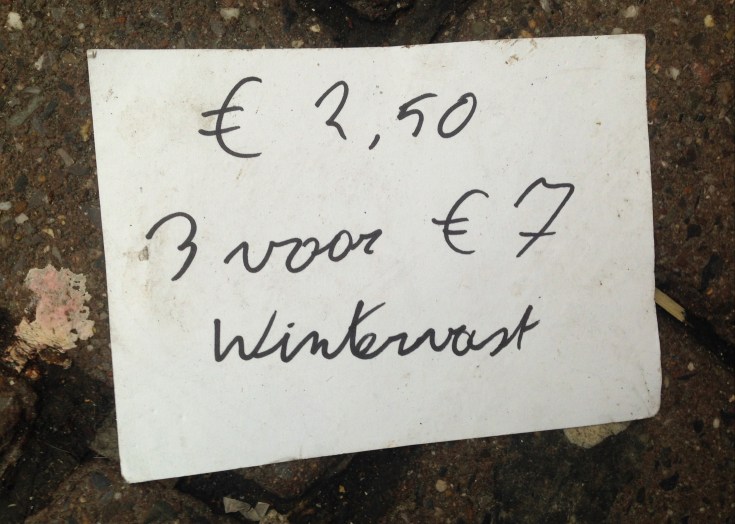 € 2,50
3 voor € 7
Wintervast